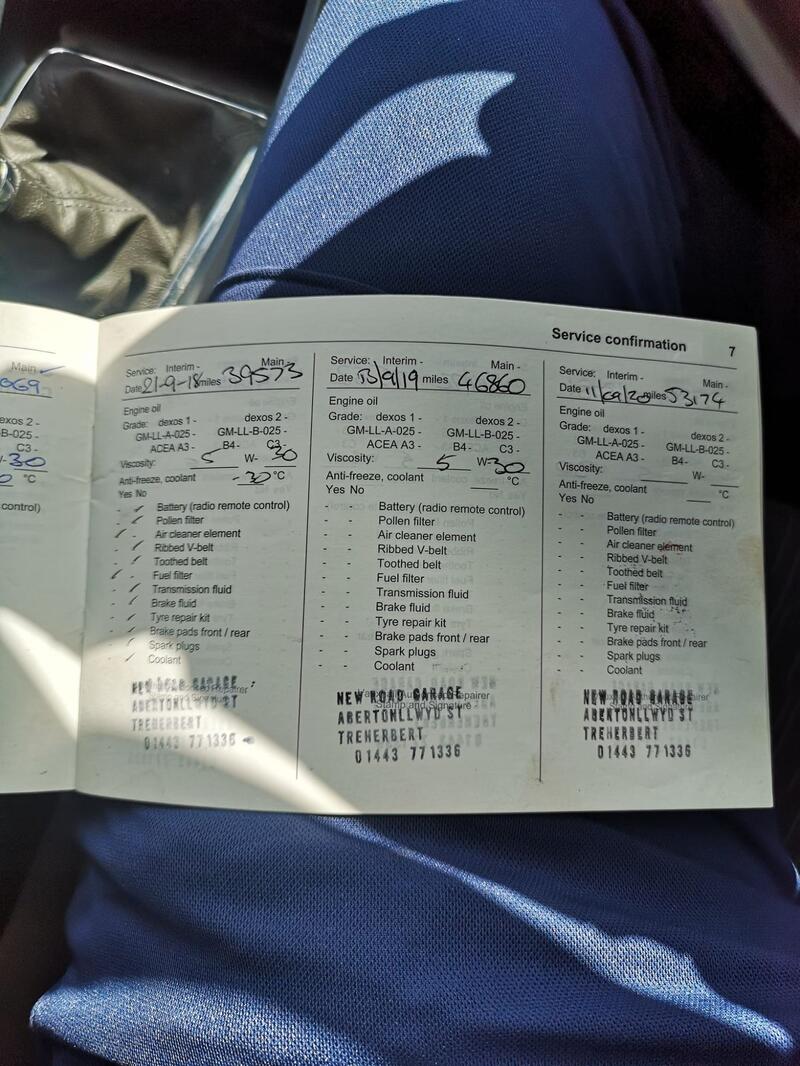 Service confirmation 7
Main -
069
dexos 2 -
B-025 -
C3 -
-30
°C
control)
Service: Interim - Main -
Date 21-9-18 miles 39573
Engine oil
Grade: dexos 1 - dexos 2 -
GM-LL-A-025 - GM-LL-B-025 -
ACEA A3 - B4 - C3 -
Viscosity: 5 W- 30
Anti-freeze, coolant -30 °C
Yes No
Battery (radio remote control)
Pollen filter
Air cleaner element
Ribbed V-belt
Toothed belt
Fuel filter
Transmission fluid
Brake fluid
Tyre repair kit
Brake pads front / rear
Spark plugs
Coolant
NEW ROAD GARAGE
Stamp and Signature
ABERTONLLWYD ST
TREHERBERT
01443 771336
Service: Interim - Main -
Date 13/9/19 miles 46860
Engine oil
Grade: dexos 1 - dexos 2 -
GM-LL-A-025 - GM-LL-B-025 -
ACEA A3 - B4 - C3 -
Viscosity: 5 W- 30
Anti-freeze, coolant °C
Yes No
- - Battery (radio remote control)
- - Pollen filter
- - Air cleaner element
- - Ribbed V-belt
- - Toothed belt
- - Fuel filter
- - Transmission fluid
- - Brake fluid
- - Tyre repair kit
- - Brake pads front / rear
- - Spark plugs
- - Coolant
NEW ROAD GARAGE
Stamp and Signature
ABERTONLLWYD ST
TREHERBERT
01443 771336
Service: Interim - Main -
Date 11/09/20 miles 53174
Engine oil
Grade: dexos 1 - dexos 2 -
GM-LL-A-025 - GM-LL-B-025 -
ACEA A3 - B4 - C3 -
Viscosity: W-
Anti-freeze, coolant °C
Yes No
- - Battery (radio remote control)
- - Pollen filter
- - Air cleaner element
- - Ribbed V-belt
- - Toothed belt
- - Fuel filter
- - Transmission fluid
- - Brake fluid
- - Tyre repair kit
- - Brake pads front / rear
- - Spark plugs
- - Coolant
NEW ROAD GARAGE
ABERTONLLWYD ST
TREHERBERT
01443 771336